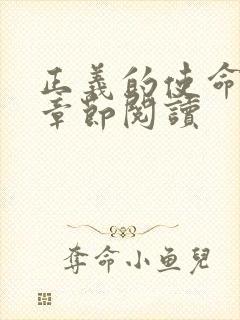 正義的使命
章節閱讀
奪命小鱼兒